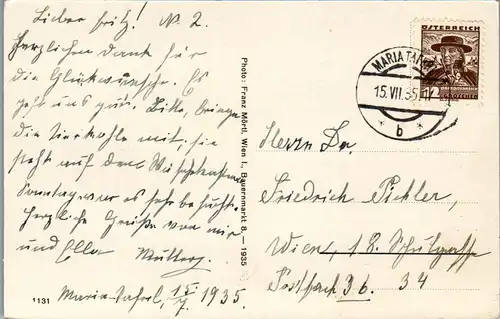 Lieber Fritz! N. 2.
Herzlichen Dank für
die Glückwunsche. Es
geht uns gut. Bitte, bringe
die Tierkohle mit, sie
steht auf dem
Sonntag war es sehr besucht.
Herzliche Grüße von mir
und Ella Mutter.
Maria-Taferl, 15/7. 1935.
1131
Photo: Franz Mörtl, Wien I., Bauernmarkt 8. — 1935
MARIA TAFERL
15.VII.35
* b *
ÖSTERREICH
12
Herrn Dr.
Friedrich Pichler,
Wien, 18. Schulgasse
Postfach 36. 34